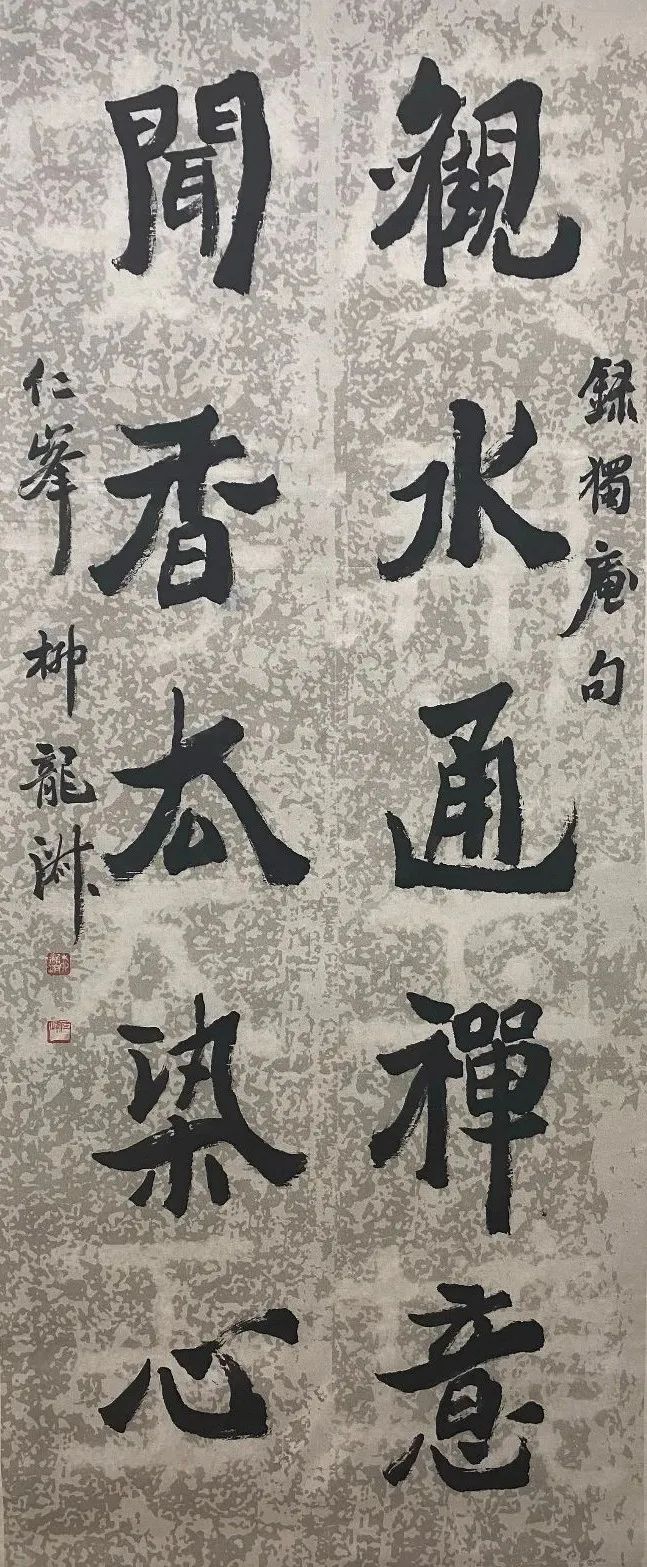 録獨庵句
觀水通禪意
聞香厺染心
仁峯 柳龍